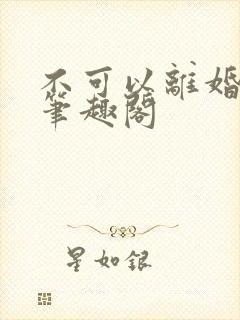 不可以離婚
筆趣閣
星如銀